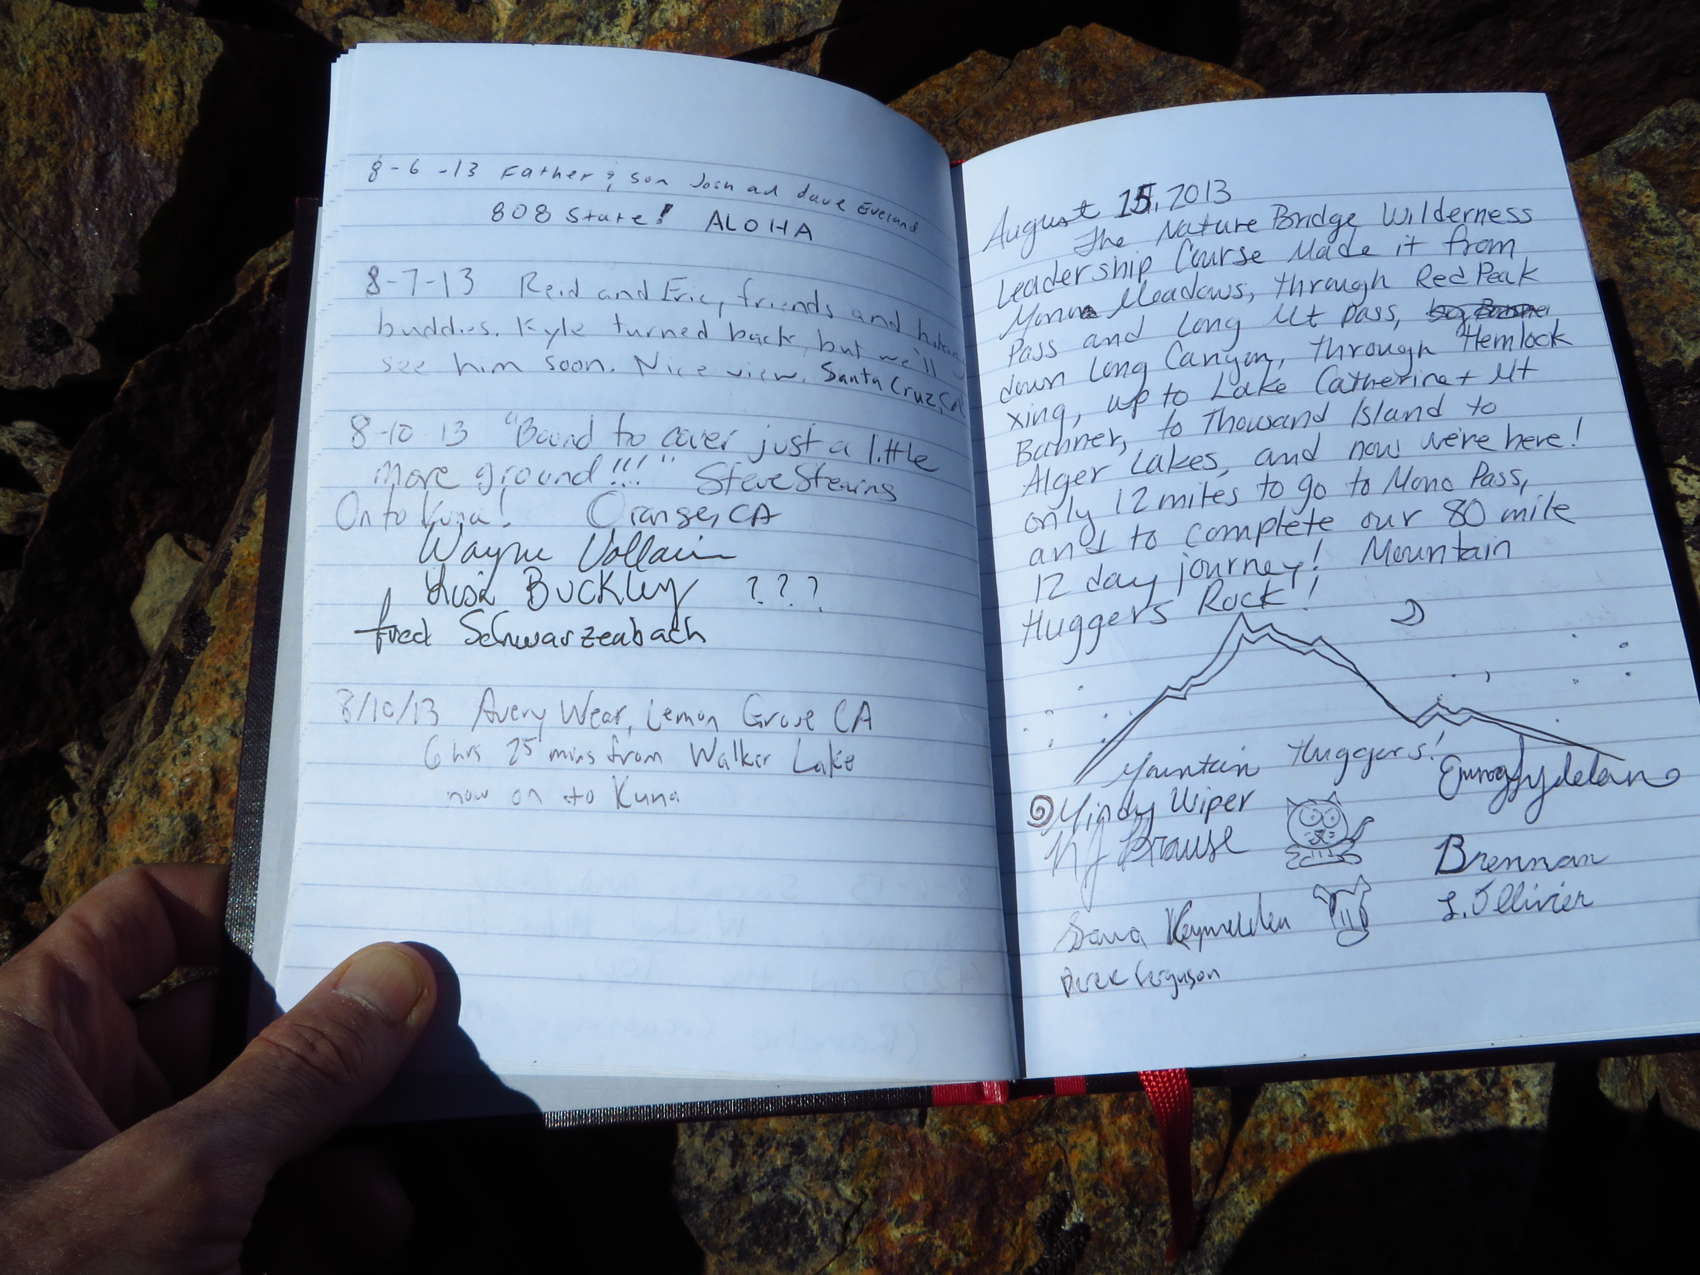 8-6-13 Father & son Josh ad Dave Eveland
808 State! ALOHA
8-7-13 Reid and Eric, friends and hiking
buddies. Kyle turned back, but we'll
see him soon. Nice view. Santa Cruz, CA
8-10-13 "Bound to cover just a little
more ground!!!" Steve Stevins
On to Kuna! Orange, CA
Wayne
Buckley ???
fred Schwarzenbach
8/10/13 Avery Wear, Lemon Grove CA
6 hrs 25 mins from Walker Lake
now on to Kuna
August 15, 2013
The Nature Bridge Wilderness
Leadership Course Made it from
Mono Meadows, through Red Peak
Pass and Long Mt Pass,
down Long Canyon, through Hemlock
xing, up to Lake Catherine + Mt
Banner, to Thousand Island to
Alger Lakes, and now we're here!
only 12 miles to go to Mono Pass,
and to complete our 80 mile
12 day journey! Mountain
Huggers Rock!
Mountain Huggers!
Mindy Wiper
NJ Brause
Brennan
L. Ollivier
Sawa
Derek Ferguson